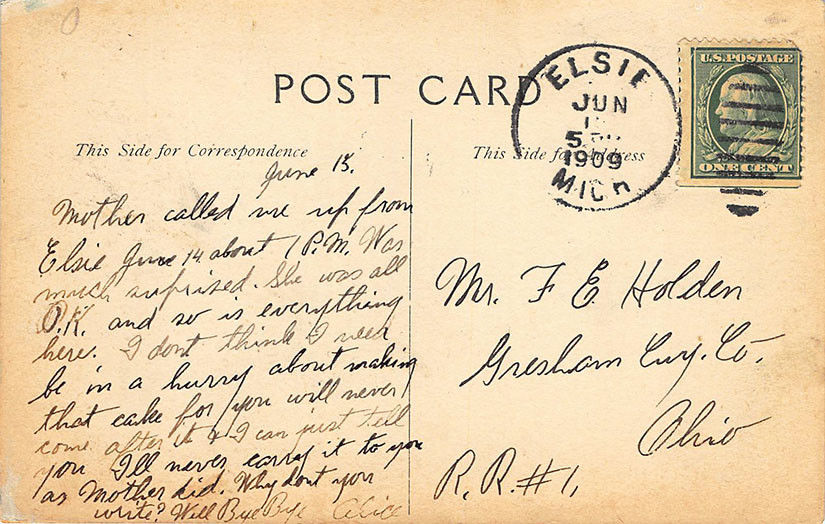 POST CARD
ELSIE
JUN
1909
MICH
U.S. POSTAGE
ONE CENT
This Side for Correspondence
This Side for Address
June 15.
Mother called me up from
Elsie June 14 about 1 P.M. Was
much suprised. She was all
O.K. and so is everything
here. I dont think I need
be in a hurry about making
that cake for you will never
come after it & I can just tell
you I'll never carry it to you
as Mother did. Why dont you
write? Well Bye Bye Alice
Mr. F E. Holden
Gresham Cuy. Co.
Ohio
R.R.#1,